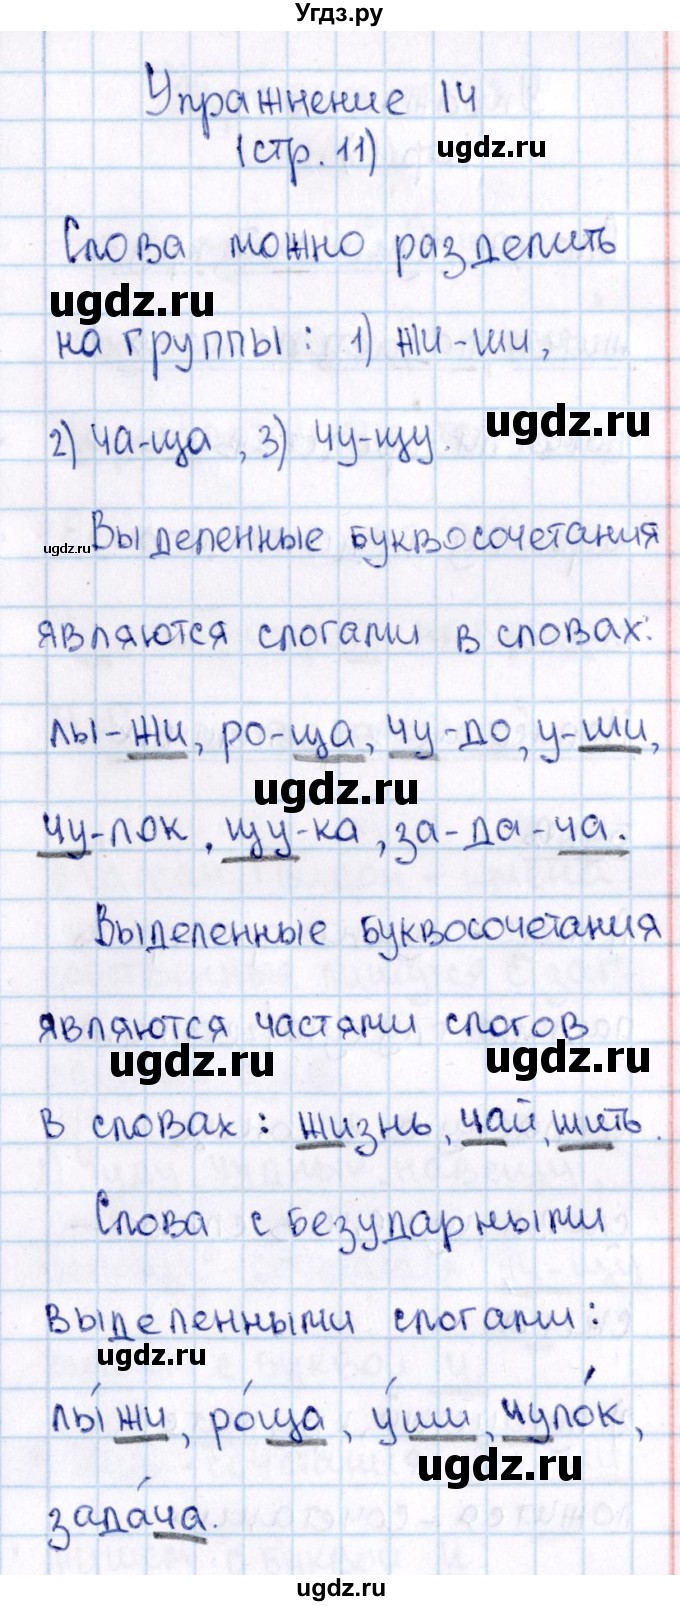 Угдз.ру
Упражнение 14
(стр. 11)
ugdz.ru
Слова можно разделить
ugdz.ru
на группы: 1) жи-ши,
2) ча-ща, 3) чу-щу.
ugdz.ru
ugdz.ru
Выделенные буквосочетания
являются слогами в словах:
лы-жи, ро-ща, чу-до, у-ши,
ugdz.ru
чу-лок, щу-ка, за-да-ча.
Выделенные буквосочетания
являются частями слогов
ugdz.ru
ugdz.ru
в словах: жизнь, чай, шить.
Слова с безударными
выделенными слогами:
ugdz.ru
лы́жи, ро́ща, у́ши, чуло́к,
ugdz.ru
зада́ча.
ugdz.ru